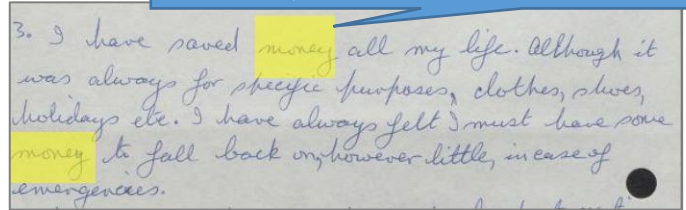 3. I have saved money all my life. Although it
was always for specific purposes, clothes, shoes,
holidays etc. I have always felt I must have some
money to fall back on, however little, in case of
emergencies.